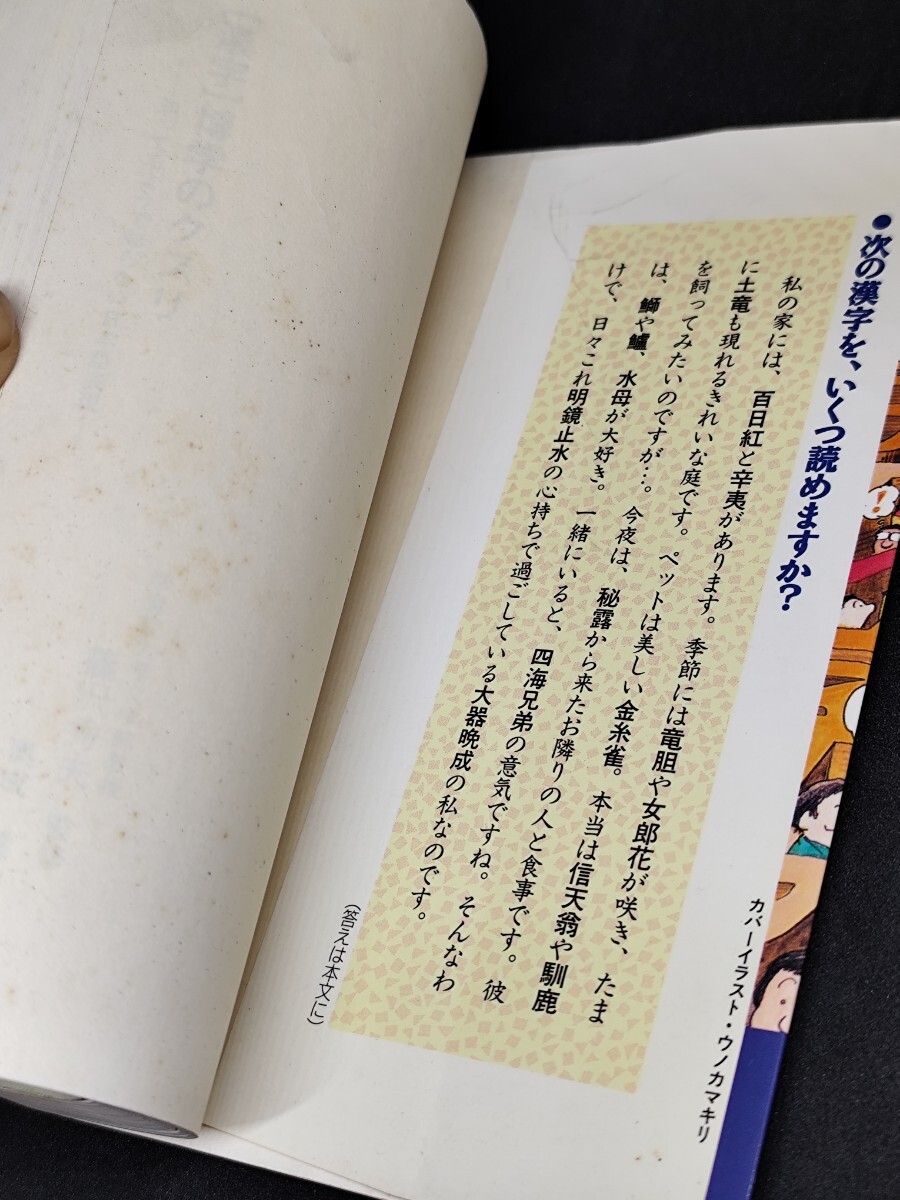 ●次の漢字を、いくつ読めますか?
私の家には、百日紅と辛夷があります。季節には竜胆や女郎花が咲き、たま
に土竜も現れるきれいな庭です。ペットは美しい金糸雀。本当は信天翁や馴鹿
を飼ってみたいのですが…。今夜は、秘露から来たお隣りの人と食事です。彼
は、鰤や鱸、水母が大好き。一緒にいると、四海兄弟の意気ですね。そんなわ
けで、日々これ明鏡止水の心持ちで過ごしている大器晩成の私なのです。
(答えは本文に)
カバーイラスト・ウノカマキリ